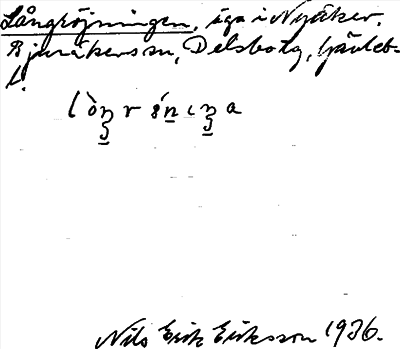 Långröjningen, äga i Nyåker,
Bjuråkers sn, Delsbo tg, Gävleb.
l.
Nils Erik Eriksson 1936.